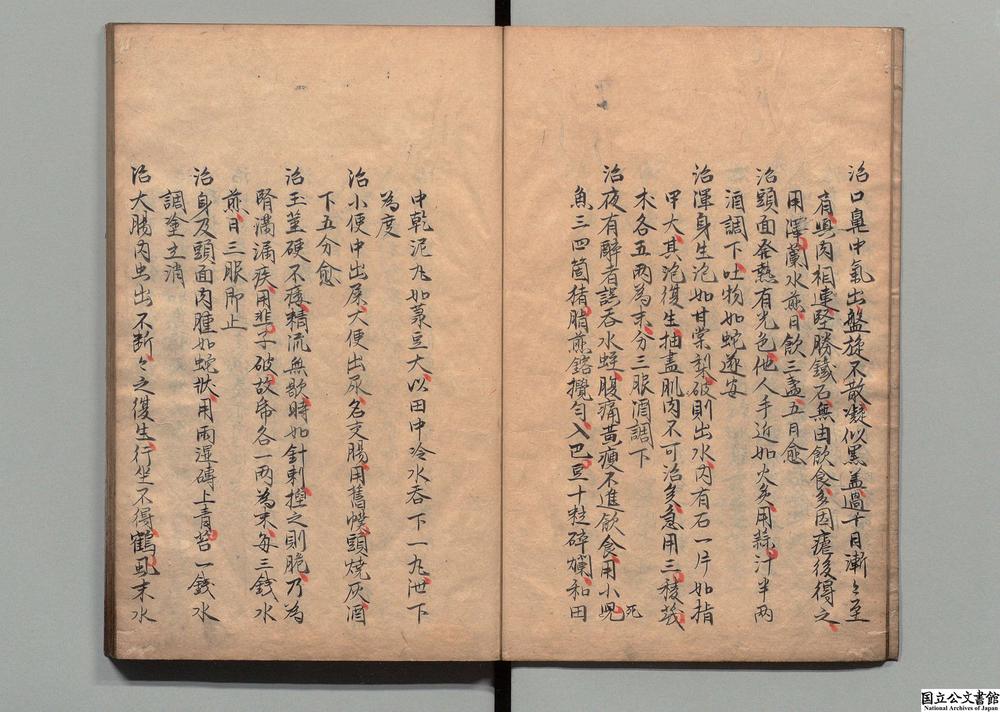 治口鼻中氣出盤旋不散凝似黑盖過十日漸々至
肩與肉相連堅勝鐵石無由飲食多因瘧後得之
用澤蘭水煎日飲三盞五日愈
治頭面發熱有光色他人手近如火炙用蒜汁半兩
酒調下吐物如蛇遂安
治渾身生泡如甘棠梨破則出水内有石一片如指
甲大其泡復生抽盡肌肉不可治矣急用三稜莪
朮各五兩為末分三服酒調下
治夜有醉者誤吞水蛭腹痛黄瘦不進飲食用小兒
死
魚三四箇猪脂煎鎔攪匀入巴豆十粒碎爛和田
中乾泥丸如菉豆大以田中冷水吞下一丸泄下
為度
治小便中出屎大便出尿名交腸用舊幞頭燒灰酒
下五分愈
治玉莖硬不痿精流無歇時如針刺揑之則脆乃為
腎滿漏疾用韭子破故帋各一兩為末每三錢水
煎日三服即止
治身及頭面肉腫如蛇状用雨湿磚上青苔一錢水
調塗立消
治大腸内虫出不断々之復生行坐不得鶴虱末水
国立公文書館
National Archives of Japan